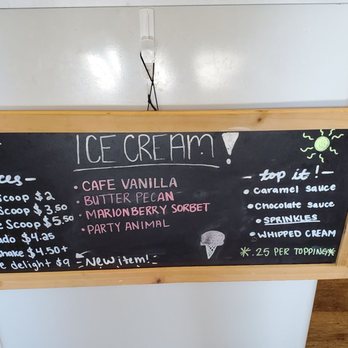 ICE CREAM!
ces -
Scoop $2
Scoop $3.50
Scoop $5.50
ado $4.25
hake $4.50+
e delight $9
• CAFE VANILLA
• BUTTER PECAN
• MARIONBERRY SORBET
• PARTY ANIMAL
- New item! -
- top it! -
• Caramel sauce
• Chocolate sauce
• SPRINKLES
• WHIPPED CREAM
*.25 PER TOPPING*